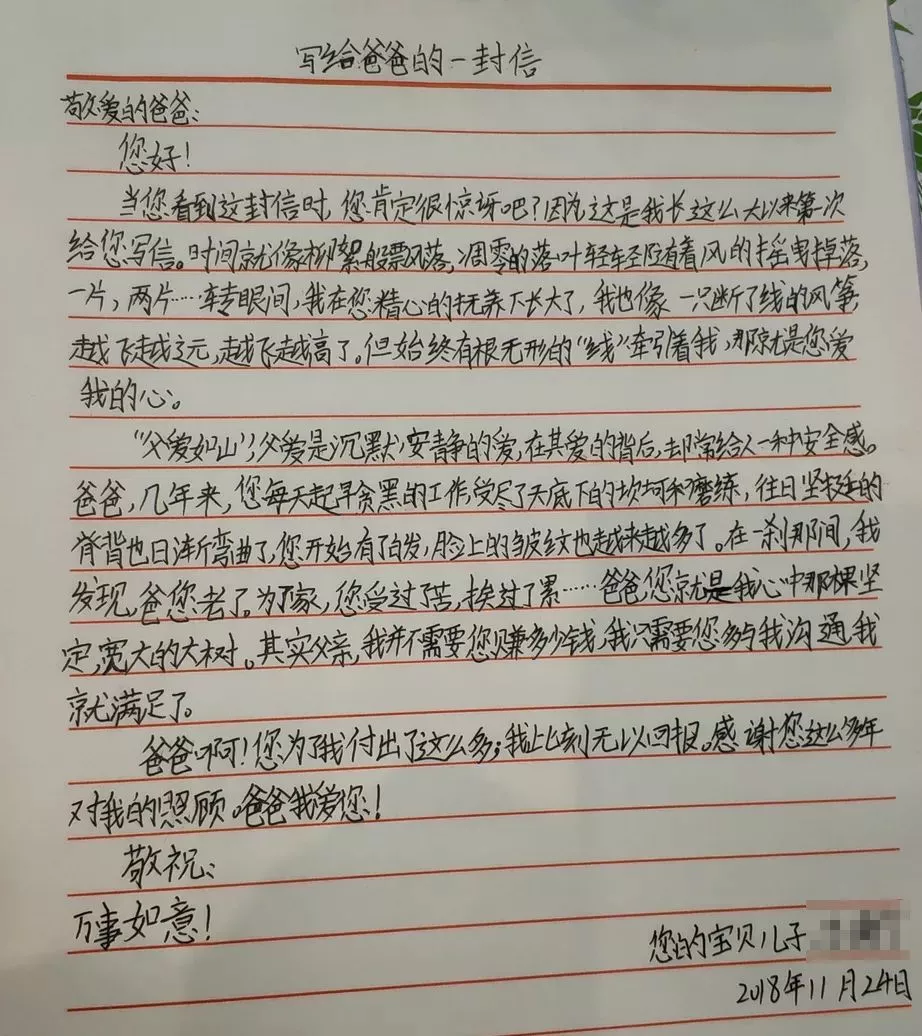 写给爸爸的一封信
敬爱的爸爸:
您好!
当您看到这封信时,您肯定很惊讶吧?因为这是我长这么大以来第一次
给您写信。时间就像柳絮般飘落,凋零的落叶轻轻随着风的摇曳掉落,
一片,两片……转眼间,我在您精心的抚养下长大了,我也像一只断了线的风筝
越飞越远,越飞越高了。但始终有根无形的“线”牵引着我,那就是您爱
我的心。
“父爱如山”,父爱是沉默,安静的爱,在其爱的背后,却常给人一种安全感。
爸爸,几年来,您每天起早贪黑的工作,受尽了天底下的坎坷和磨练,往日坚挺的
脊背也日渐弯曲了,您开始有了白发,脸上的皱纹也越来越多了。在一刹那间,我
发现,爸您老了。为了家,您受过了苦,挨过了累……爸爸,您就是我心中那棵坚
定,宽大的大树。其实父亲,我并不需要您赚多少钱,我只需要您多与我沟通我
就满足了。
爸爸啊!您为了我付出了这么多;我此刻无以回报。感谢您这么多年
对我的照顾。爸爸我爱您!
敬祝:
万事如意!
您的宝贝儿子
2018年11月24日